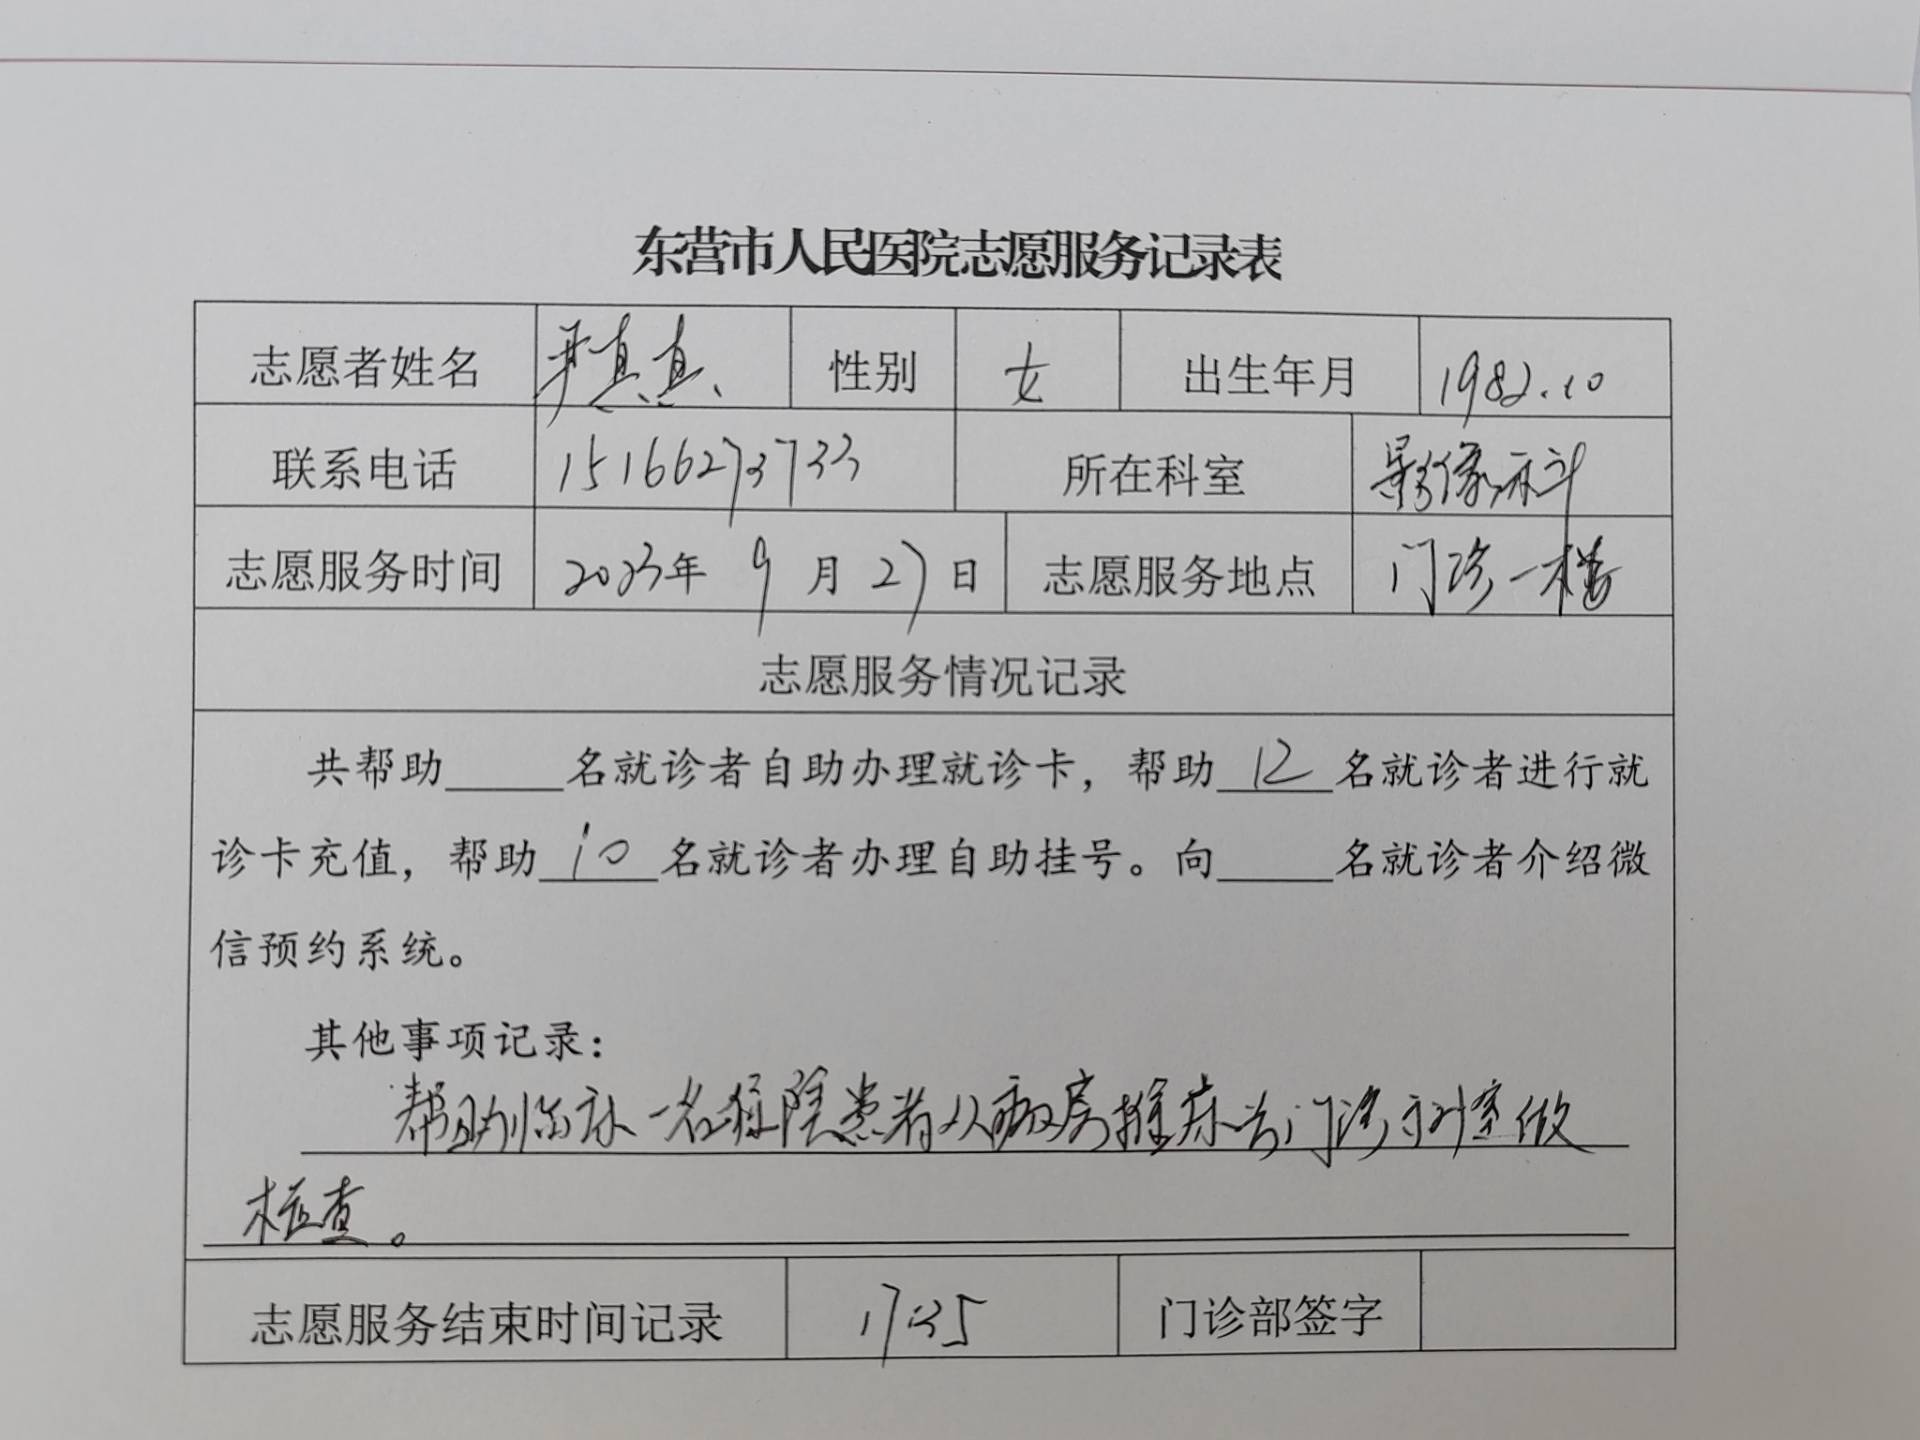 东营市人民医院志愿服务记录表
志愿者姓名 尹真真 性别 女 出生年月 1982.10
联系电话 15166273733 所在科室 影像科
志愿服务时间 2023年 9月27日 志愿服务地点 门诊一楼
志愿服务情况记录
共帮助____名就诊者自助办理就诊卡，帮助12名就诊者进行就
诊卡充值，帮助10名就诊者办理自助挂号。向____名就诊者介绍微
信预约系统。
其他事项记录：
帮助临床一名住院患者从病房推床去门诊科室做
检查。
志愿服务结束时间记录 17:35 门诊部签字